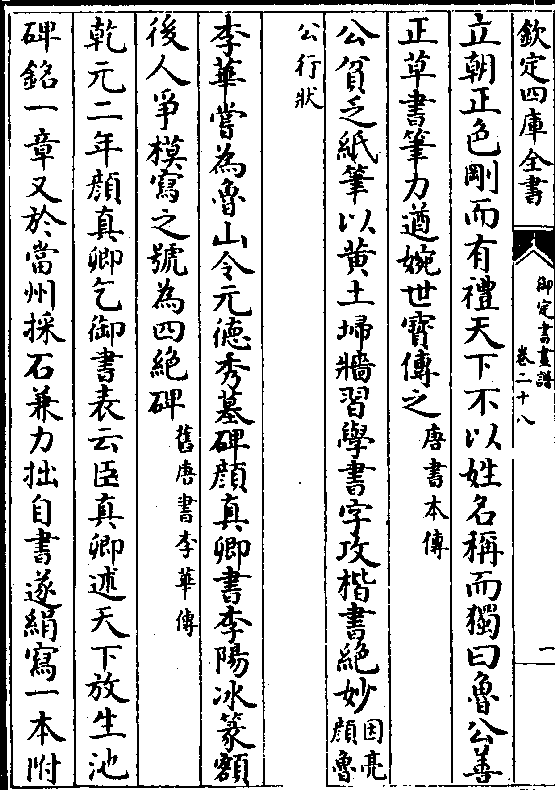 欽定四庫全書
御定書畫譜
卷二十八
一
立朝正色剛而有禮天下不以姓名稱而獨曰魯公善
正草書筆力遒婉世寶傳之唐書本傳
公貧乏紙筆以黃土埽牆習學書字攻楷書絕妙因亮顔魯
公行狀
李華嘗為魯山令元德秀墓碑顔真卿書李陽冰篆額
後人爭模寫之號為四絕碑舊唐書李華傳
乾元二年顔真卿乞御書表云臣真卿述天下放生池
碑銘一章又於當州採石兼力拙自書遂絹寫一本附